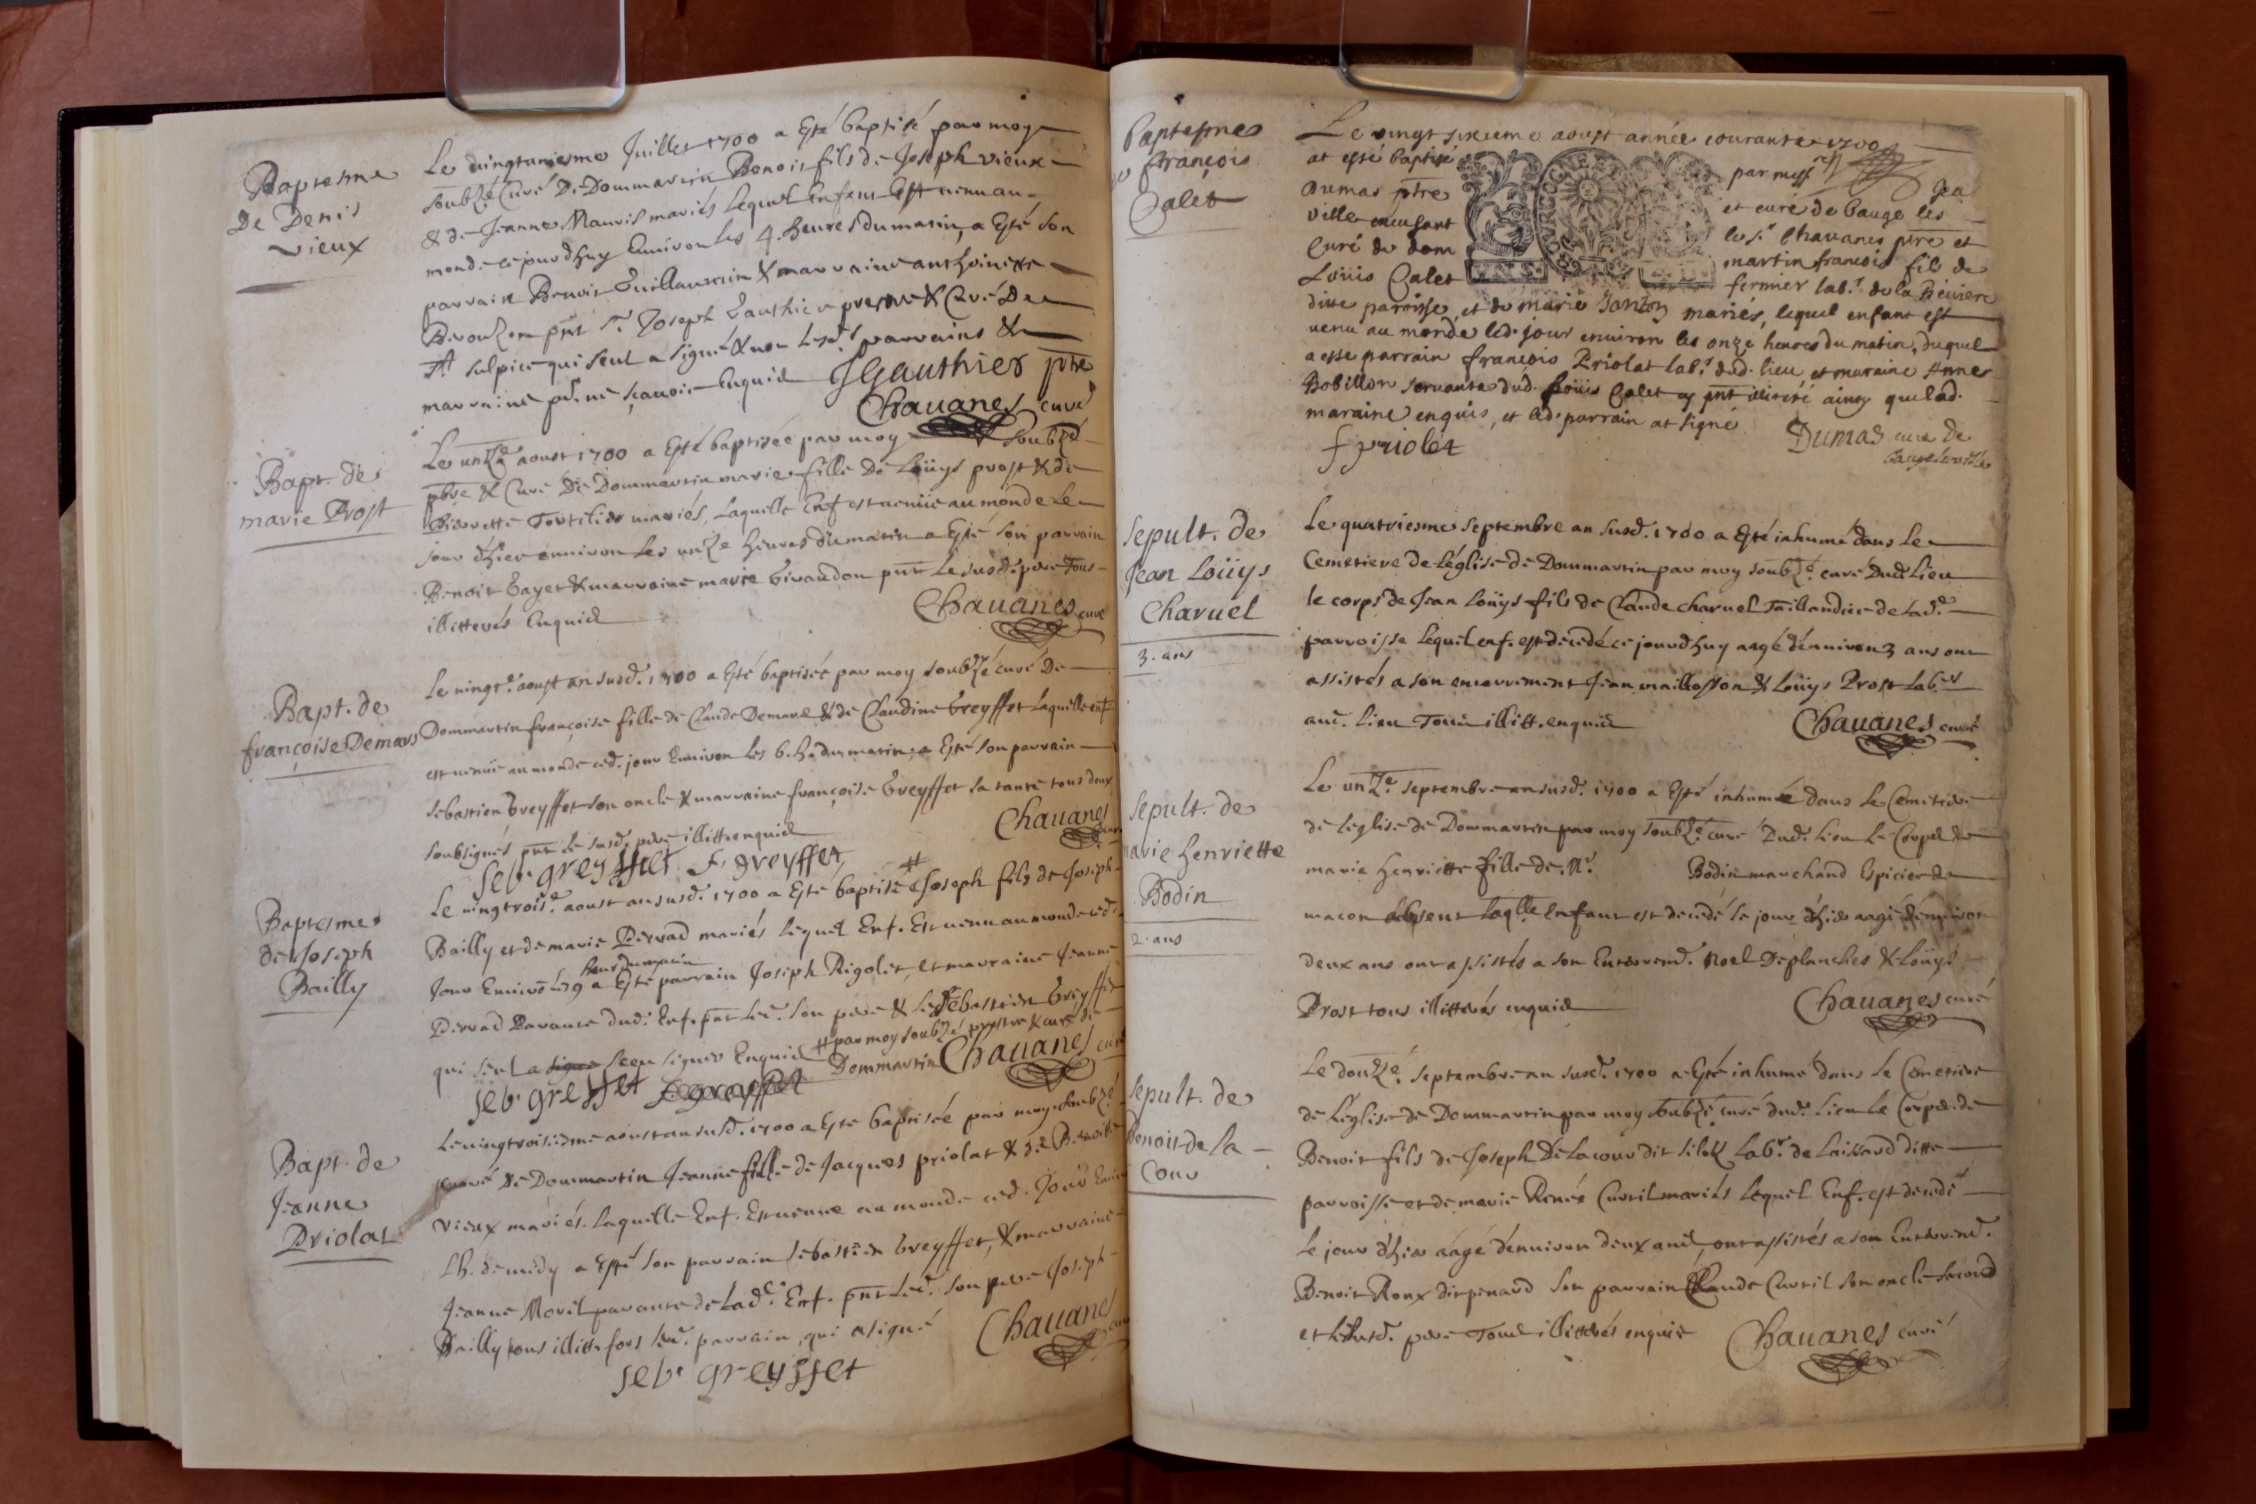 Baptesme
De Denis
vieux
Le vingtuniesme Juillet 1700 a Esté baptisé par moy
soubzé Curé De Dommartin Benoit fils de Joseph vieux
& de Jeanne Mauris mariés lequel Enfant Est venu au
monde ce jourdhuy Environ les 4. heures du matin, a Esté son
parrain Benoit Guillaumin & marraine anthoinette
pnt Sr. Joseph Gauthier prestre & Curé De
St Sulpice qui seul a signé & non lesd. parrains &
marraine pr. ne sçavoir Enquis JGauthier ptre
Chauanes curé
Bapt. de
marie Prost
Le unze aoust 1700 a Esté baptisée par moy soubzé
pbre & Curé De Dommartin marie fille De Loüys prost & de
Pierrette Tortilier mariés, Laquelle Enf. est venüe au monde Le
jour d'hier environ Les unze heures du matin a Esté son parrain
Benoit Gayet & marraine marie Givaudon pnt Le susd. pere Tous
illitterés Enquis
Chauanes curé
Bapt. de
françoise Demars
Le vingte. aoust an susd. 1700 a Esté baptisée par moy soubzé curé De
Dommartin françoise fille de Claude Demare & de Claudine Greyffet Laquelle enf
est venüe au monde ced. jour Environ les 6. h. du matin, a Esté son parrain
sebastien Greyffet son oncle & marraine françoise Greyffet sa tante tous deux
soubsignés pnt Le susd. pere illitt. enquis
Chauanes
seb. greysset f. greyffet
Baptesme
de Joseph
Bailly
Le vingtroise. aoust an susd. 1700 a Esté baptisé # Joseph fils de Joseph
Bailly et de marie Pervad mariés lequel Enf. Est venu au monde ced.
heur du matin
Jour Environ les 9 a Esté parrain Joseph Rigolet, et marraine Jeanne
Pervad Parante dud. Enf. pnt Led. son pere & Led. Sebastien Greyffet
qui seul a signé sceu signer Enquis # par moy soubzé prestre & curé de
Dommartin Chauanes curé
seb. greysset
Bapt. de
Jeanne
Priolat
Le vingtroisiesme aoust an susd. 1700 a Esté baptisée par moy soubzé
curé De Dommartin Jeanne fille de Jacques priolat & de Benoitte
vieux mariés. Laquelle Enf. Est venue au monde ced. Jour
Lh. de midy a Esté son parrain sebastien Greyffet, & marraine
Jeanne Morel parante de Lade. Enf. pnt Led. son pere Joseph
Bailly tous illitt. fors led. parrain qui a signé
Chauanes
seb. greysset
Baptesme
françois
Calet
Le vingt sixieme aoust année courante 1700
at esté baptisé par mess
Dumas ptre et curé de baugé les
ville en lesant le sr. Chauanes ptre et
Curé de dom martin francois fils de
Loüis Calet fermier labr. de la Beviere
ditte paroisse, et de marie Janton mariés, lequel enfant est
venu au monde led. jour environ les onze heures du matin, duquel
a esté parrain françois Priolat labr. dud. lieu et maraine Anne
Bobillon servante dud. Loüis Calet cy pnt illitéré ainsy que lad.
maraine enquis, et led. parrain at signé
f priolet
Dumas curé de
Sepult. de
Jean Loüys
Charuel
3. ans
Le quatriesme septembre an susd. 1700 a Esté inhumé dans Le
Cemetiere de L'église de Dommartin par moy soubzé. curé Dud. Lieu
le corps de Jean Loüys fils de Claude charuel Taillandier de Lade.
parroisse Lequel enf. est decedé ce jourd'huy aagé d'environ 3 ans ont
assistés a son enterrement Jean maillosson & Loüys Prost Labrs
aud. Lieu Tous illitt. enquis
Chauanes curé
Sepult. de
marie henriette
Bodin
2. ans
Le unze. septembre an susd. 1700 a Esté inhumée dans Le Cemetiere
de Léglise de Dommartin par moy soubzé. curé Dud. Lieu Le Corps de
marie henriette fille de Mr. Bodin marchand Espicier de
macon absent Laqlle Enfant est decedé le jour d'hier aagé d'environ
deux ans ont assistés a son Enterremt. Noel Deplanches & Loüys
Prost tous illitterés enquis
Chauanes curé
Sepult. de
Benoit de la
Cour
Le douze. septembre an susd. 1700 a Esté inhumé dans Le Cemetiere
de L'église de Dommartin par moy soubzé curé dud. Lieu Le Corps de
Benoit fils de Joseph De Lacour dit Labr. de Laissard ditte
parroisse et de marie Renée Curtil mariés Lequel Enf. est decedé
Le jour d'hier aagé d'environ deux ans, ont assistés a son Enterremt.
Benoit Roux dit penard son parrain Claude Curtil son oncle second
et le susd. pere Tous illitterés enquis
Chauanes curé